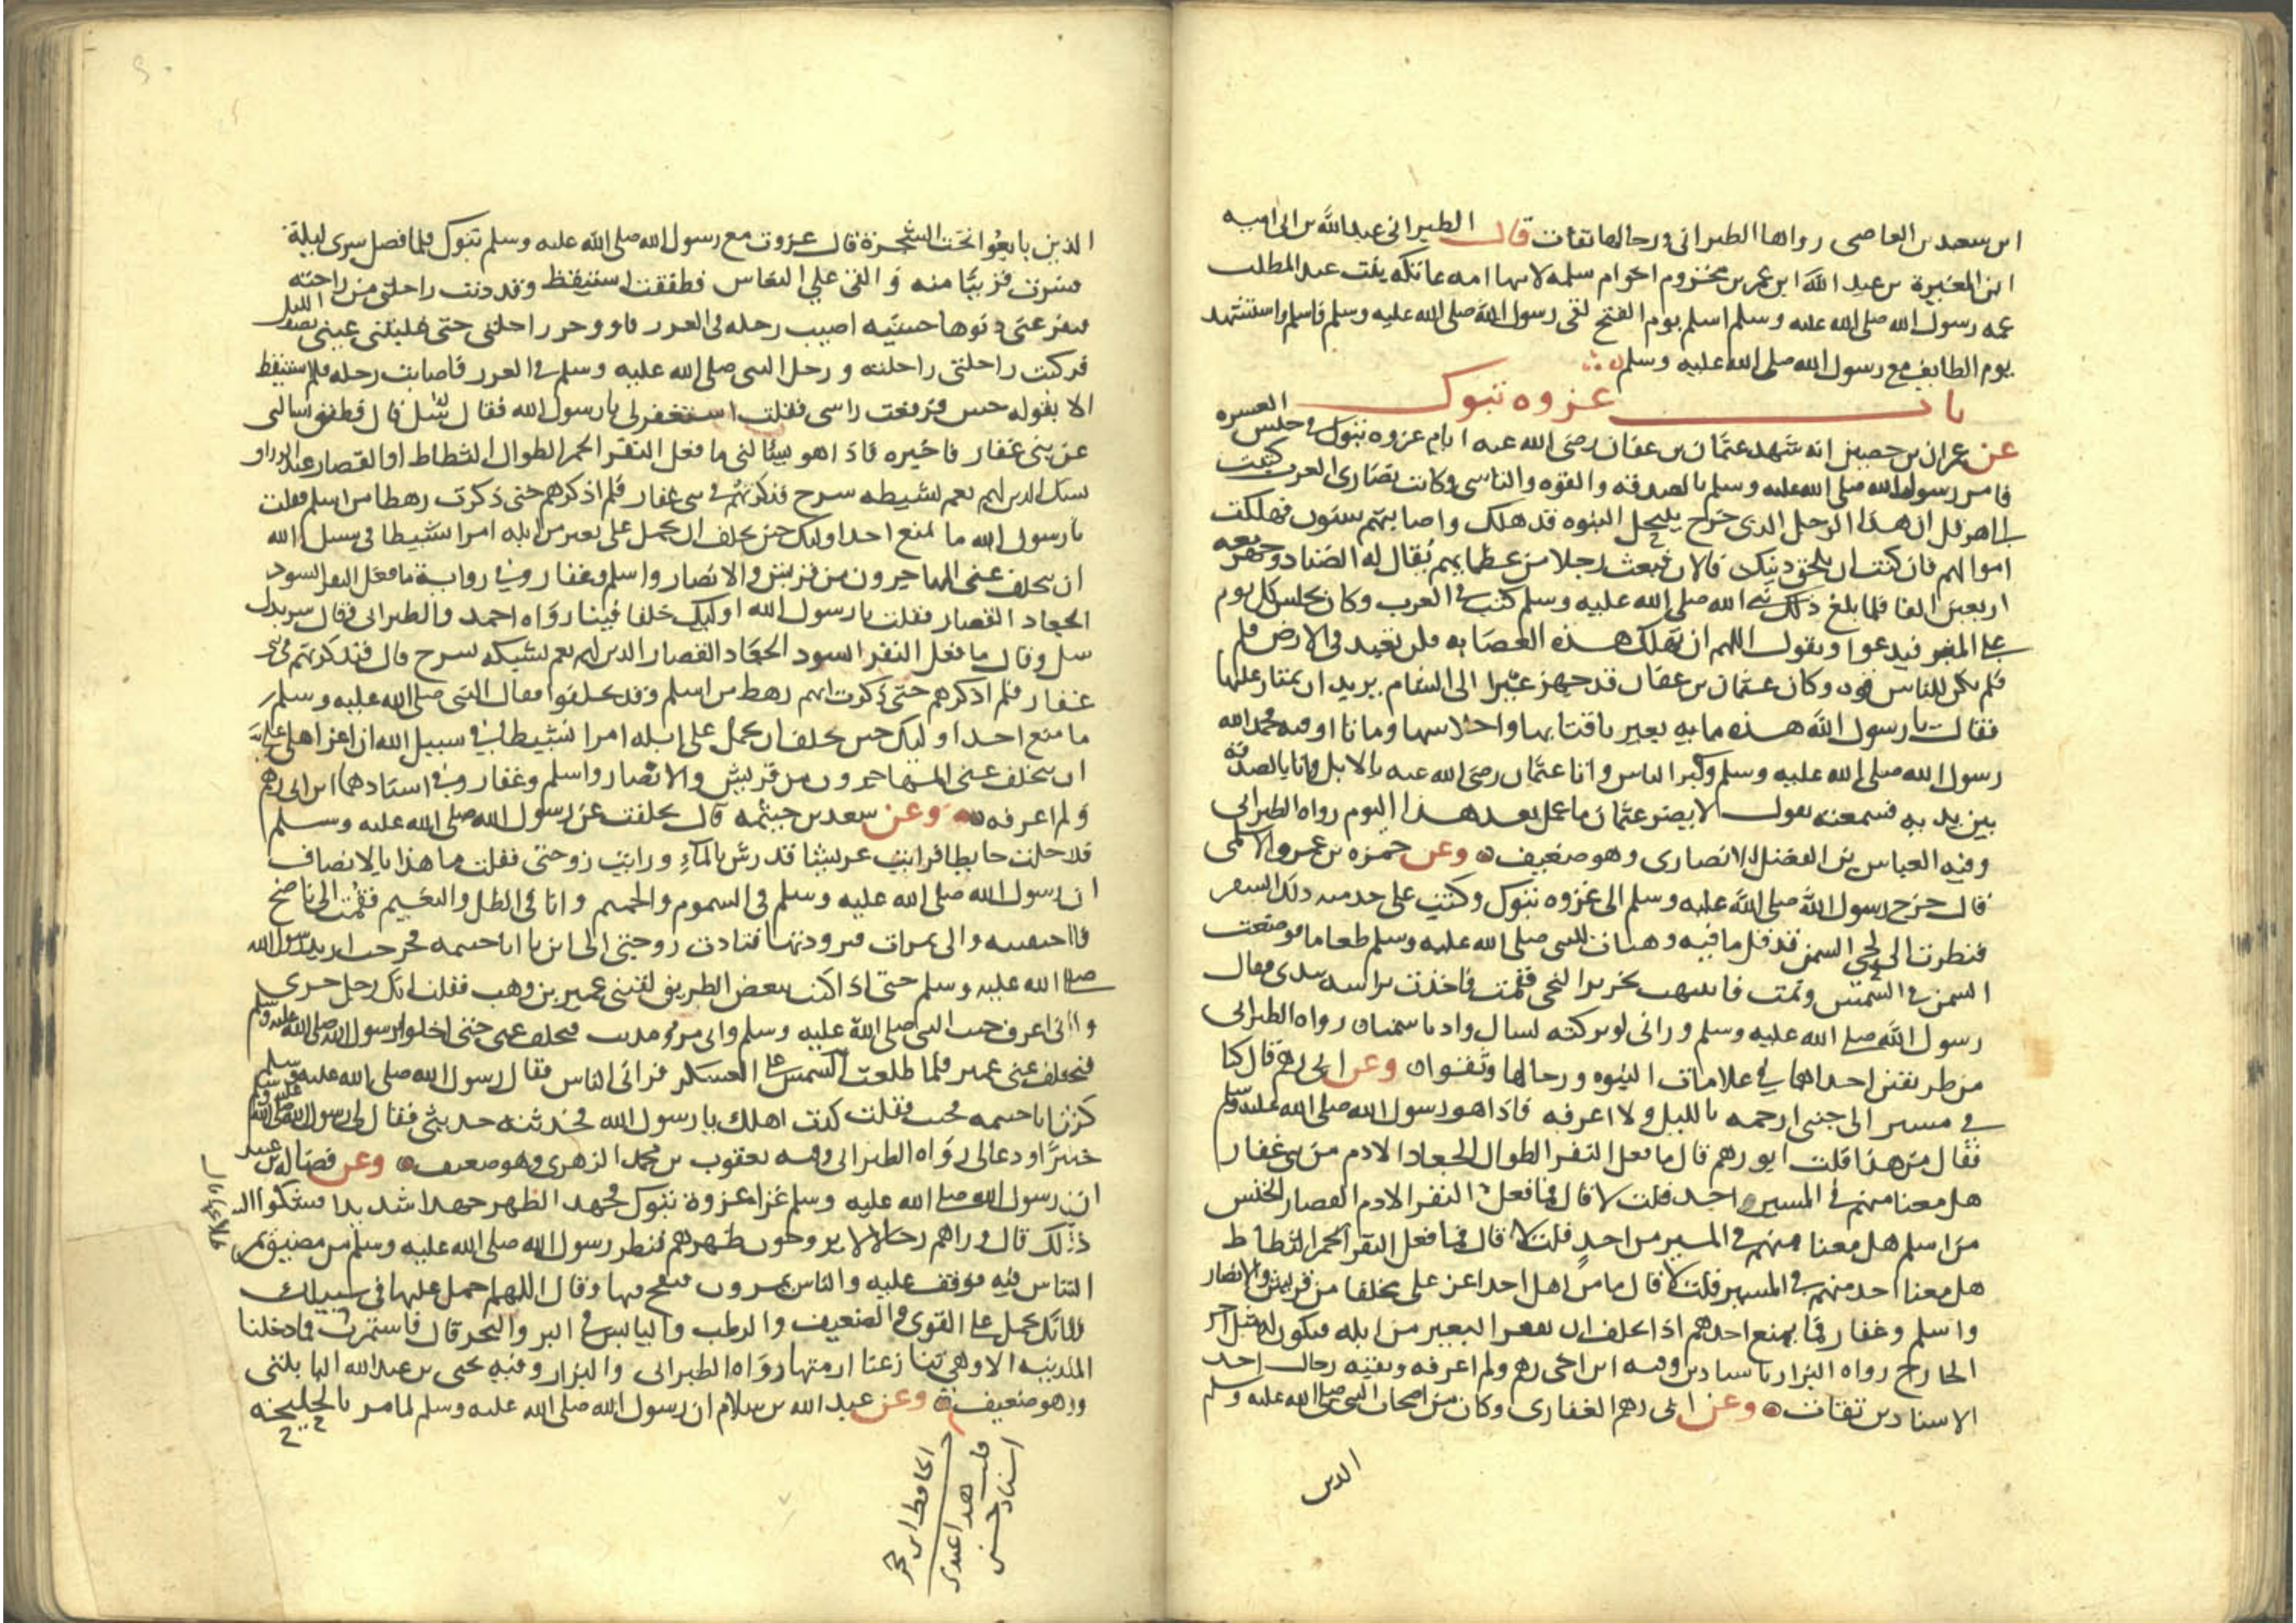 ابن سعد بن العاصي رواها الطبراني ورجالها ثقات قال الطبراني عبد الله بن ابي اميه
ابن المغيرة بن عبد الله ابن عمر بن مخزوم اخو ام سلمه لابيها امه عاتكه بنت عبد المطلب
عمه رسول الله صلى الله عليه وسلم اسلم يوم الفتح لقى رسول الله صلى الله عليه وسلم فاسلم واستشهد
يوم الطايف مع رسول الله صلى الله عليه وسلم
باب غزوه تبوك
عن عمران بن حصين انه شهد عثمان بن عفان رضى الله عنه ايام غزوه تبوك في جيش العسره
فامر رسول الله صلى الله عليه وسلم بالصدقه والقوه والتاسى وكانت نصارى العرب كتبت
الى هرقل ان هذا الرجل الذى خرج ينتحل النبوه قد هلك واصابتهم سنون فهلكت
اموالهم فان كنت ان تلحق دينك فالان فبعث رجلا من عظمايهم يقال له الضناد وجهز معه
اربعين الفا فلما بلغ ذلك نبي الله صلى الله عليه وسلم كتب في العرب وكان يجلس كل يوم
على المنبر فيدعوا ويقول اللهم ان تهلك هذه العصابه فلن تعبد في الارض فلم
فلم يكن للناس قوه وكان عثمان بن عفان قد جهز عيرا الى الشام يريد ان يمتار عليها
فقال يا رسول الله هذه مايه بعير باقتابها واحلاسها ومايتا اوقيه فحمد الله
رسول الله صلى الله عليه وسلم وكبر الناس واتا عثمان رضى الله عنه بالابل واتا بالصدقه
بين يديه فسمعته يقول لا يضر عثمان ما عمل بعد هذا اليوم رواه الطبراني
وفيه العباس بن الفضل الانصارى وهو ضعيف وعن حمزه بن عمرو الاسلمى
قال خرج رسول الله صلى الله عليه وسلم الى غزوه تبوك وكنت على خدمته ذلك السفر
فنظرت الى نحي السمن قد قل ما فيه وهيات للنبي صلى الله عليه وسلم طعاما فوضعت
السمن في الشمس ونمت فانتبهت بخرير النحى فقمت فاخذت براسه بيدى فقال
رسول الله صلى الله عليه وسلم وراني لو تركته لسال واديا سمنا رواه الطبراني
من طريقين احداهما في علامات النبوه ورجالها وثقوا وعن ابي رهم قال كنا
في مسير الى جنبى ارحمه بالليل ولا اعرفه فاذا هو رسول الله صلى الله عليه وسلم
فقال من هذا قلت ابو رهم قال ما فعل النفر الطوال الجعاد الادم من بنى غفار
هل معنا منهم في المسير احد قلت لا قال فما فعل النفر الادم القصار الخنس
من اسلم هل معنا منهم في المسير من احد قلت لا قال فما فعل النفر الحمر الثطاط
هل معنا احد منهم في المسير قلت لا قال ما من اهل احد اعز على مخلفا من قريش والانصار
واسلم وغفار فما يمنع احدهم اذا تخلف ان يفقر البعير من ابله فيكون له مثل اجر
الخارج رواه البزار باسنادين وفيه ابن اخى رهم ولم اعرفه وبقيه رجال احد
الاسنادين ثقات وعن ابي رهم الغفارى وكان من اصحاب النبى صلى الله عليه وسلم
الذين
الذين بايعوا تحت الشجرة قال غزوت مع رسول الله صلى الله عليه وسلم تبوك فلما فصل سرى ليلة
فسرت قريبا منه والقى علي النعاس فطفقت استيقظ وقد دنت راحلتى من راحلته
فيفزعنى دنوها خشيه اصيب رحله في الغرز فاوخر راحلتى حتى غلبتنى عينى نصف الليل
فركبت راحلتى راحلته ورحل النبى صلى الله عليه وسلم في الغرز فاصابت رحله فلم استيقظ
الا بقوله حس فرفعت راسى فقلت استغفر لى يا رسول الله فقال سل قال فطفق يسالنى
عن بنى غفار فاخبره فاذا هو يسالنى ما فعل النفر الحمر الطوال الثطاط او القصار
الذين لهم نعم بشبكه سرح فتذكرتهم في بنى غفار فلم اذكرهم حتى ذكرت رهطا من اسلم فقلت
يا رسول الله ما يمنع احد اوليك حين يتخلف ان يحمل على بعير من ابله امرا نشيطا في سبيل الله
ان يتخلف عنى المهاجرون من قريش والانصار واسلم وغفار وفى رواية ما فعل النفر السود
الجعاد القصار فقلت يا رسول الله اوليك خلفا فينا رواه احمد والطبراني فقال
سل وقال ما فعل النفر السود الجعاد القصار الذين لهم نعم بشبكه سرح قال فتذكرتهم في بنى
غفار فلم اذكرهم حتى ذكرت انهم رهط من اسلم وقد تخلفوا فقال النبى صلى الله عليه وسلم
ما منع احد اوليك حين تخلف ان يحمل على ابله امرا نشيطا في سبيل الله ان اعز اهلى على
ان يتخلف عنى المهاجرون من قريش والانصار واسلم وغفار وفي اسنادهما ابن اخى رهم
ولم اعرفه وعن سعد بن خيثمه قال تخلفت عن رسول الله صلى الله عليه وسلم
فدخلت حايطا فرايت عريشا قد رش بالماء ورايت زوجتى فقلت ما هذا بالانصاف
ان رسول الله صلى الله عليه وسلم في السموم والحميم وانا في الظل والنعيم فقمت الى ناضح
فاحتقبته والى تمرات فتزودتها فنادت زوجتى الى اين يا ابا خيثمه فخرجت اريد رسول الله
صلى الله عليه وسلم حتى اذا كنت ببعض الطريق لقينى عمير بن وهب فقلت انك رجل جرى
وانى اعرف حيث النبي صلى الله عليه وسلم وانى امرو مذنب فتخلف عنى حتى اخلوا برسول الله صلى الله عليه وسلم
فتخلف عنى عمير فلما طلعت الشمس على العسكر فرانى الناس فقال رسول الله صلى الله عليه وسلم
كن ابا خيثمه فجيت فقلت كدت اهلك يا رسول الله فحدثته حديثى فقال لى رسول الله صلى الله عليه وسلم
خيرا ودعا لى رواه الطبراني وفيه يعقوب بن محمد الزهرى وهو ضعيف وعن فضاله بن عبيد
ان رسول الله صلى الله عليه وسلم غزا غزوة تبوك فجهد الظهر جهدا شديدا فشكوا اليه
ذلك قال وراهم رجالا لا يروحون ظهرهم فنظر رسول الله صلى الله عليه وسلم من مضيق يمر
الناس فيه فوقف عليه والناس يمرون فنفخ فيها وقال اللهم احمل عليها في سبيلك
فانك تحمل على القوى والضعيف والرطب واليابس في البر والبحر قال فاستمرت فما دخلنا
المدينه الا وهي تنازعنا ازمتها رواه الطبراني والبزار وفيه يحيى بن عبد الله البابلتى
وهو ضعيف وعن عبد الله بن سلام ان رسول الله صلى الله عليه وسلم لما مر بالخليجه
قلت هذا عندى
اسناد حسن
الحافظ ابن حجر